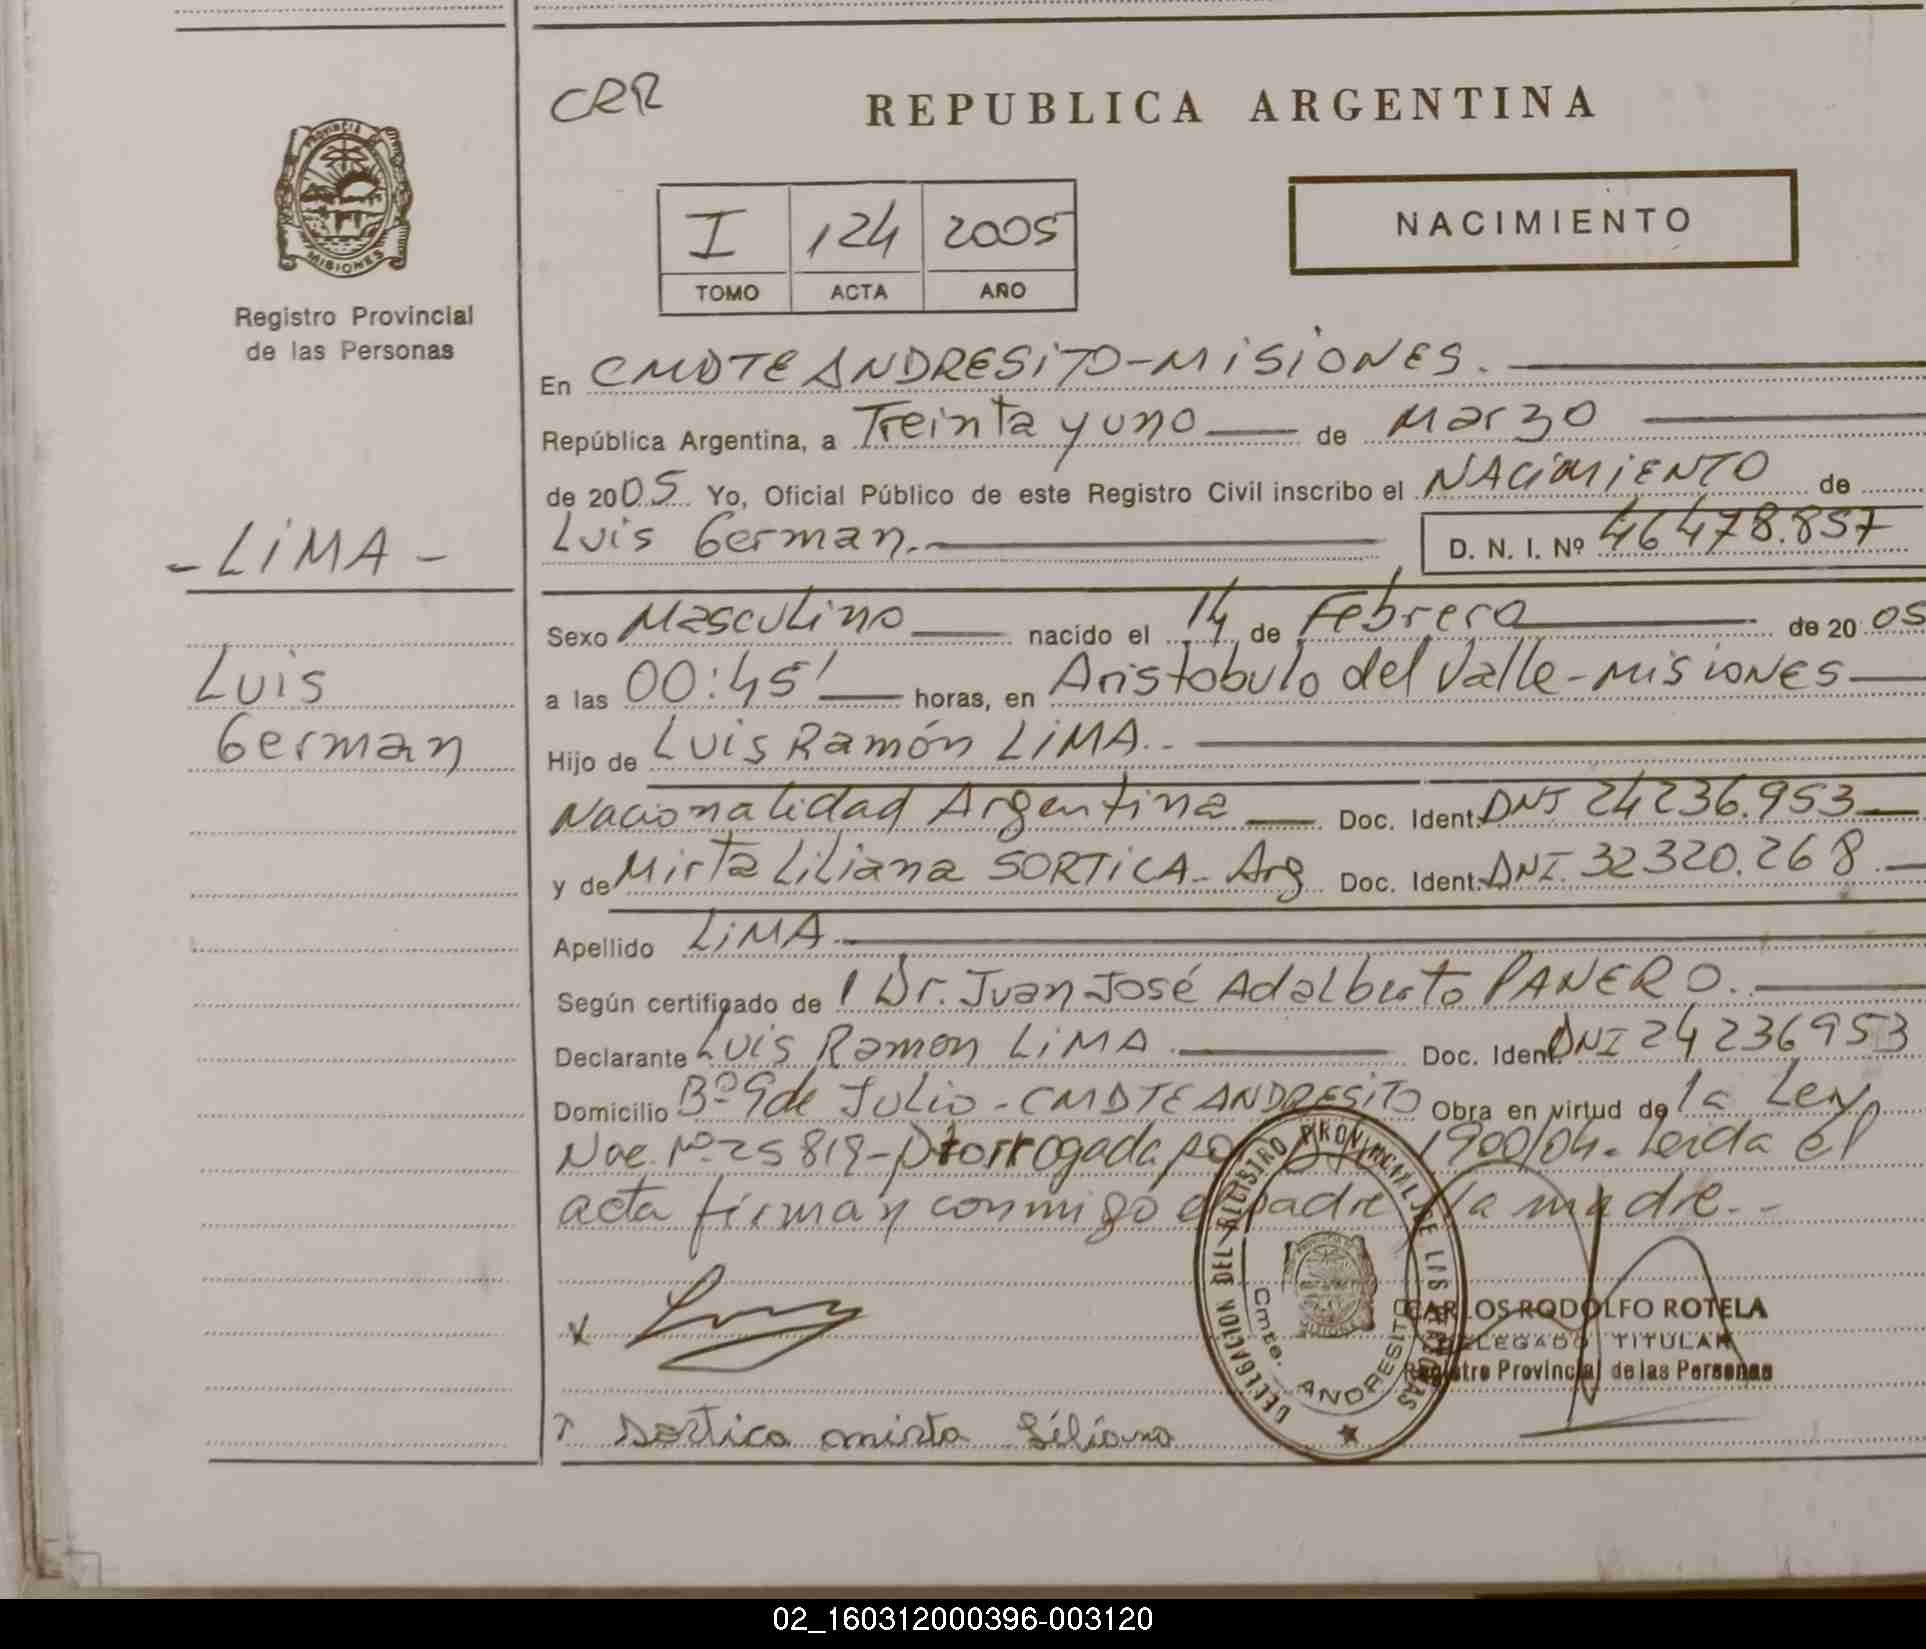 CRR
REPUBLICA ARGENTINA
PROVINCIA DE
MISIONES
Registro Provincial
de las Personas
I 124 2005
TOMO ACTA AÑO
NACIMIENTO
En CMDTE ANDRESITO-MISIONES.
República Argentina, a Treinta y uno de Marzo
de 2005 Yo, Oficial Público de este Registro Civil inscribo el NACIMIENTO de
Luis German. D. N. I. Nº 46478.857
- LIMA -
Luis
German
Sexo Masculino nacido el 14 de Febrero de 2005
a las 00:45' horas, en Aristobulo del Valle-MISIONES
Hijo de Luis Ramón LIMA.
Nacionalidad Argentina Doc. Ident. DNI 24236.953
y de Mirta Liliana SORTICA- Arg Doc. Ident. DNI. 32320.268.
Apellido LIMA.
Según certificado de l Dr. Juan José Adalberto PANERO.
Declarante Luis Ramon LIMA Doc. Ident. DNI 24236953
Domicilio Bº 9 de Julio - CMDTE ANDRESITO Obra en virtud de la Ley
Nac. Nº 25819-prorrogada po 1900/04. Leida el
acta firman conmigo el padre la madre.-
x
CARLOS RODOLFO ROTELA
DELEGADO TITULAR
Registro Provincial de las Personas
DELEGACION DEL REGISTRO PROVINCIAL DE LAS PERSONAS
Cmte. ANDRESITO
Sortica mirta Liliana
02_160312000396-003120